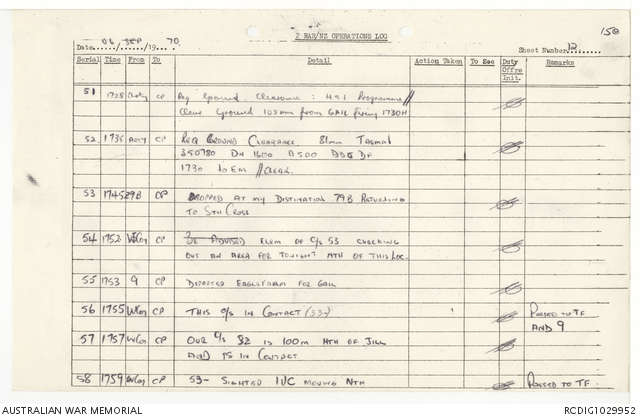 2 RAR/NZ OPERATIONS LOG
150
Date 06 / SEP /19 70
Sheet Number 13
Serial Time From To Detail Action Taken To Sec Duty Offrs Init. Remarks
51 1728 CP Req Ground Clearance: 451 Programme //
Clear Ground 105mm from GAIL firing 1730H
52 1735 Arty CP Req Ground Clearance 81mm Tasman
350780 DN 1600 A500 DF
1730 10 Em // Clear
53 1745 29B CP Dropped at my Destination 79B Returning
to Sth Cross
54 1752 WCoy CP Advised Elem of C/S 53 checking
out an area for tonight Nth of this Loc.
55 1753 9 CP Disposed Eaglefarm for Gail
56 1755 WCoy CP This C/S in Contact (53-) Passed to TF
AND 9
57 1757 WCoy CP Our C/S 32 is 100m Nth of Jill
AND IS IN CONTACT
58 1759 WCoy CP 53- Sighted 1 VC moving Nth Passed to TF.
AUSTRALIAN WAR MEMORIAL
RCDIG1029952